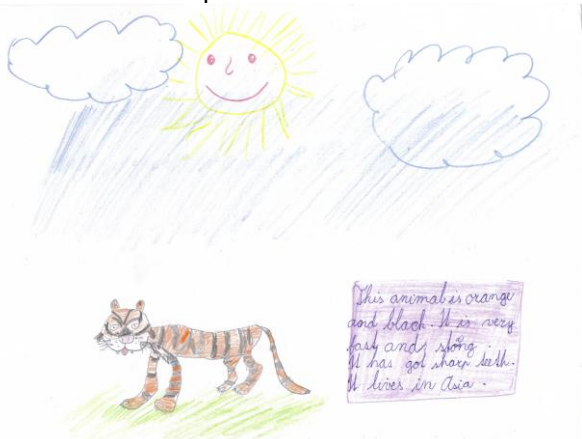 This animal is orange
and black. It is very
fast and strong.
It has got sharp teeth.
It lives in Asia.